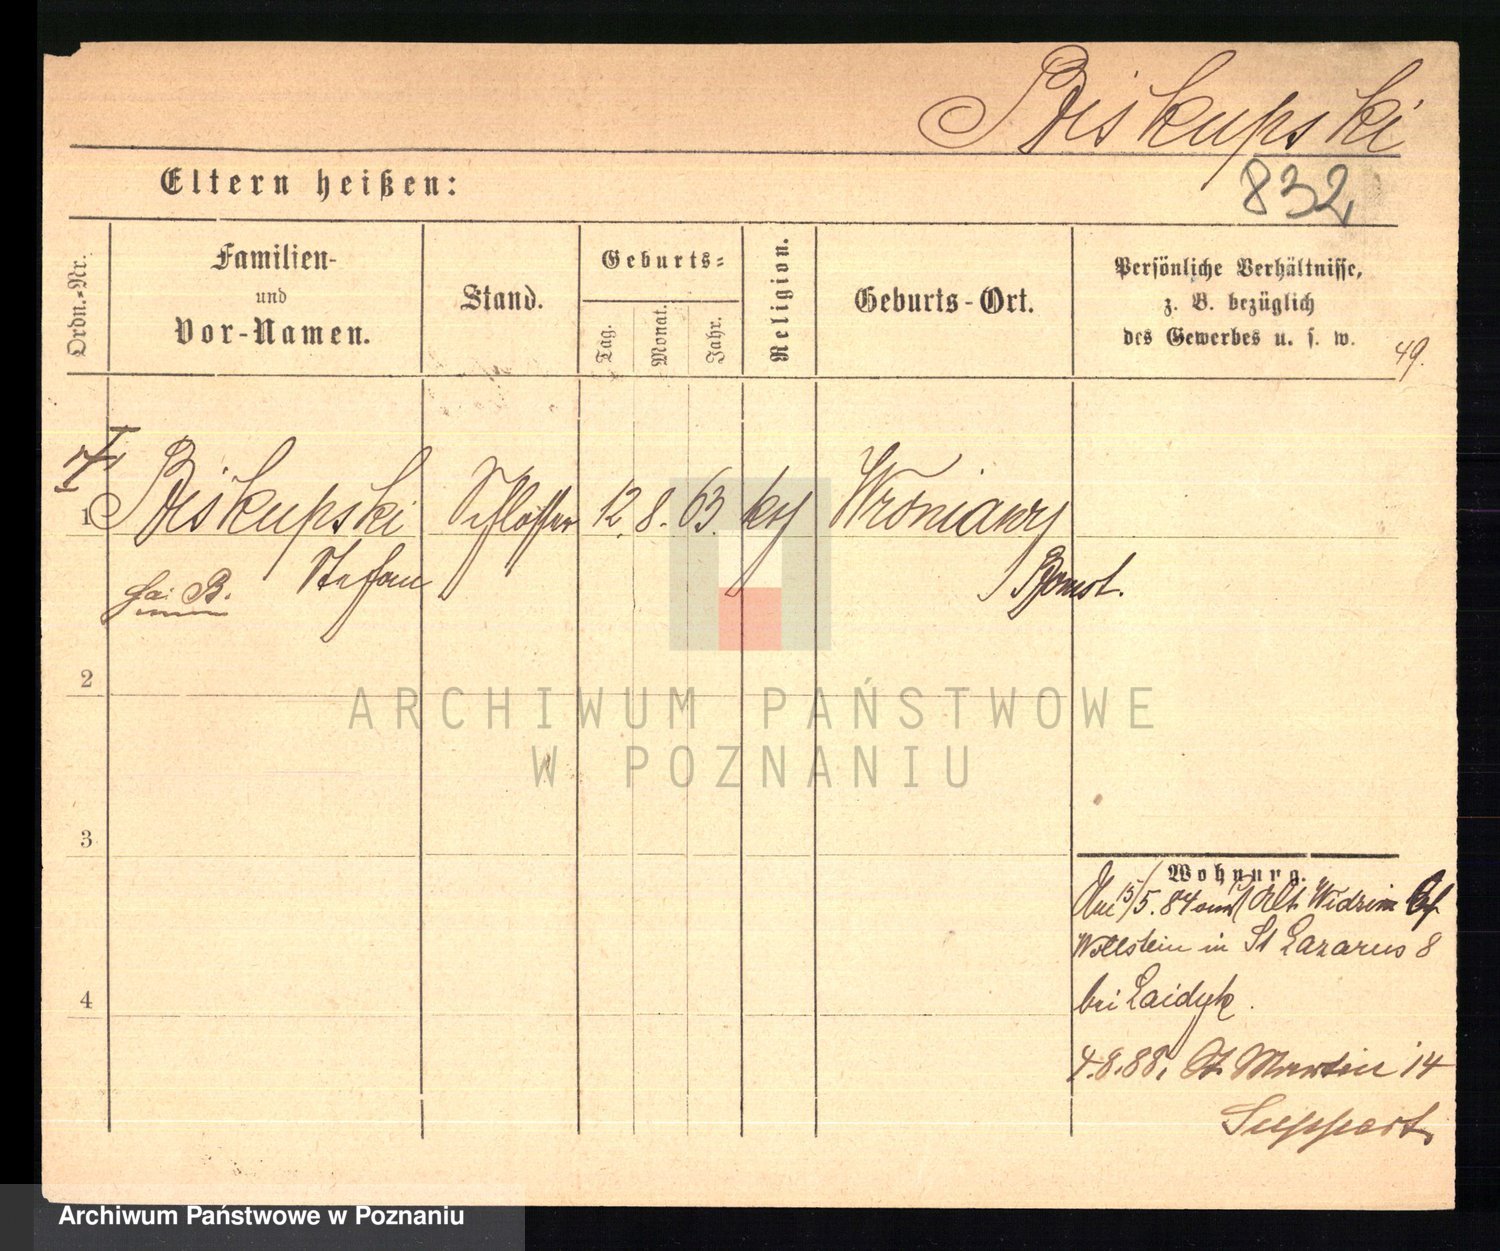 Biskupski
832
Eltern heißen:
Ordn.-Nr.
Familien-
und
Vor-Namen.
Stand.
Geburts-
Tag.
Monat.
Jahr.
Religion.
Geburts-Ort.
Persönliche Verhältnisse,
z. B. bezüglich
des Gewerbes u. s. w.
49.
1 Biskupski Schlosser 12. 8. 63. kth Wroniawy
Stefan
B.
Bomst.
2
3
4
Wohnung.
15/5. 84 Alt Widzim
Wollstein in St Lazarus 8
bei Laidyk.
4.8.88. St. Martin 14
ARCHIWUM PAŃSTWOWE
W POZNANIU
Archiwum Państwowe w Poznaniu